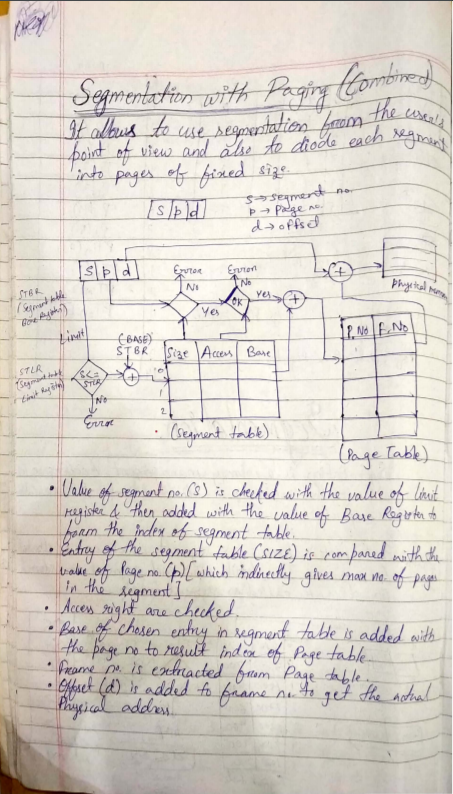 Segmentation with Paging (Combined)
It allows to use segmentation from the user's
point of view and also to diode each segment
into pages of fixed size.
s p d
s → segment no.
p → Page no.
d → offset
S p d
Error
Error
No
No
OK
Yes
Yes
+
+
Physical
STBR
(Segment table
Base Register)
Limit
STLR
(Segment table
Limit Register)
S<=
STLR
No
Error
(BASE)
STBR
+
Size Access Base
0
1
2
(Segment table)
P.No F.No
(Page Table)
• Value of segment no. (S) is checked with the value of limit
register & then added with the value of Base Register to
form the index of segment table.
• Entry of the segment table (SIZE) is compared with the
value of Page no. (p) [which indirectly gives max no. of pages
in the segment]
• Access right are checked.
• Base of chosen entry in segment table is added with
the page no to result index of Page table.
• Frame no. is extracted from Page table.
• Offset (d) is added to frame no. to get the actual
Physical address.